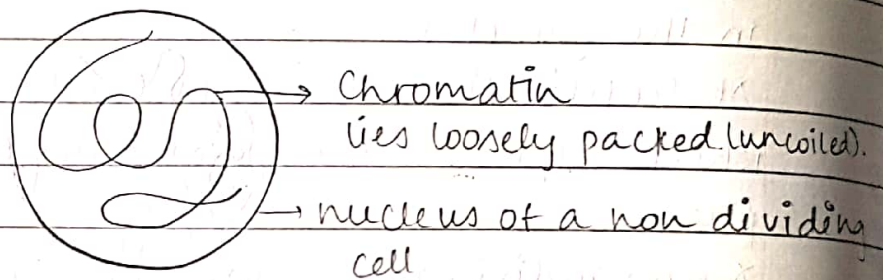 Chromatin
lies loosely packed (uncoiled).
nucleus of a non dividing
cell